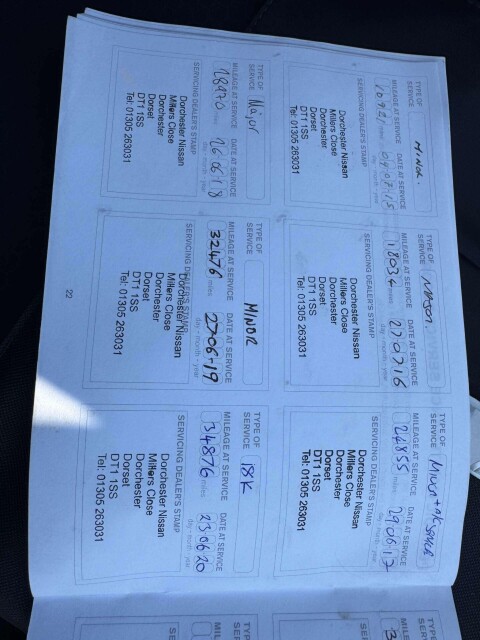 TYPE OF SERVICE MINOR.
MILEAGE AT SERVICE DATE AT SERVICE
10921 miles 09 07 15
day - month - year
SERVICING DEALER'S STAMP
Dorchester Nissan
Millers Close
Dorchester
Dorset
DT1 1SS
Tel: 01305 263031
TYPE OF SERVICE
MILEAGE AT SERVICE DATE AT SERVICE
18034 miles 27 07 16
day - month - year
SERVICING DEALER'S STAMP
Dorchester Nissan
Millers Close
Dorchester
Dorset
DT1 1SS
Tel: 01305 263031
TYPE OF SERVICE Minor + A/C Service
MILEAGE AT SERVICE DATE AT SERVICE
24855 miles 29 06 17
day - month - year
SERVICING DEALER'S STAMP
Dorchester Nissan
Millers Close
Dorchester
Dorset
DT1 1SS
Tel: 01305 263031
TYPE OF SERVICE Major
MILEAGE AT SERVICE DATE AT SERVICE
28970 miles 26 06 18
day - month - year
SERVICING DEALER'S STAMP
Dorchester Nissan
Millers Close
Dorchester
Dorset
DT1 1SS
Tel: 01305 263031
TYPE OF SERVICE MINOR
MILEAGE AT SERVICE DATE AT SERVICE
32476 miles 27 06 - 19
day - month - year
SERVICING DEALER'S STAMP
Dorchester Nissan
Millers Close
Dorchester
Dorset
DT1 1SS
Tel: 01305 263031
TYPE OF SERVICE 18K
MILEAGE AT SERVICE DATE AT SERVICE
34876 miles 23 06 20
day - month - year
SERVICING DEALER'S STAMP
Dorchester Nissan
Millers Close
Dorchester
Dorset
DT1 1SS
Tel: 01305 263031
22